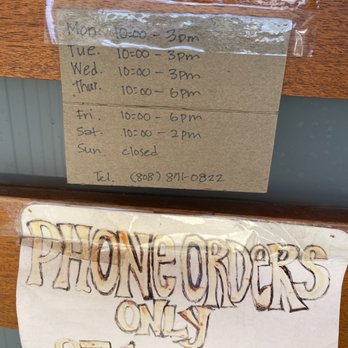 Mon. 10:00 - 3pm
Tue. 10:00 - 3pm
Wed. 10:00 - 3pm
Thur. 10:00 - 6pm
Fri. 10:00 - 6pm
Sat. 10:00 - 2pm
Sun closed
Tel. (808) 871-0822
PHONE ORDERS
ONLY